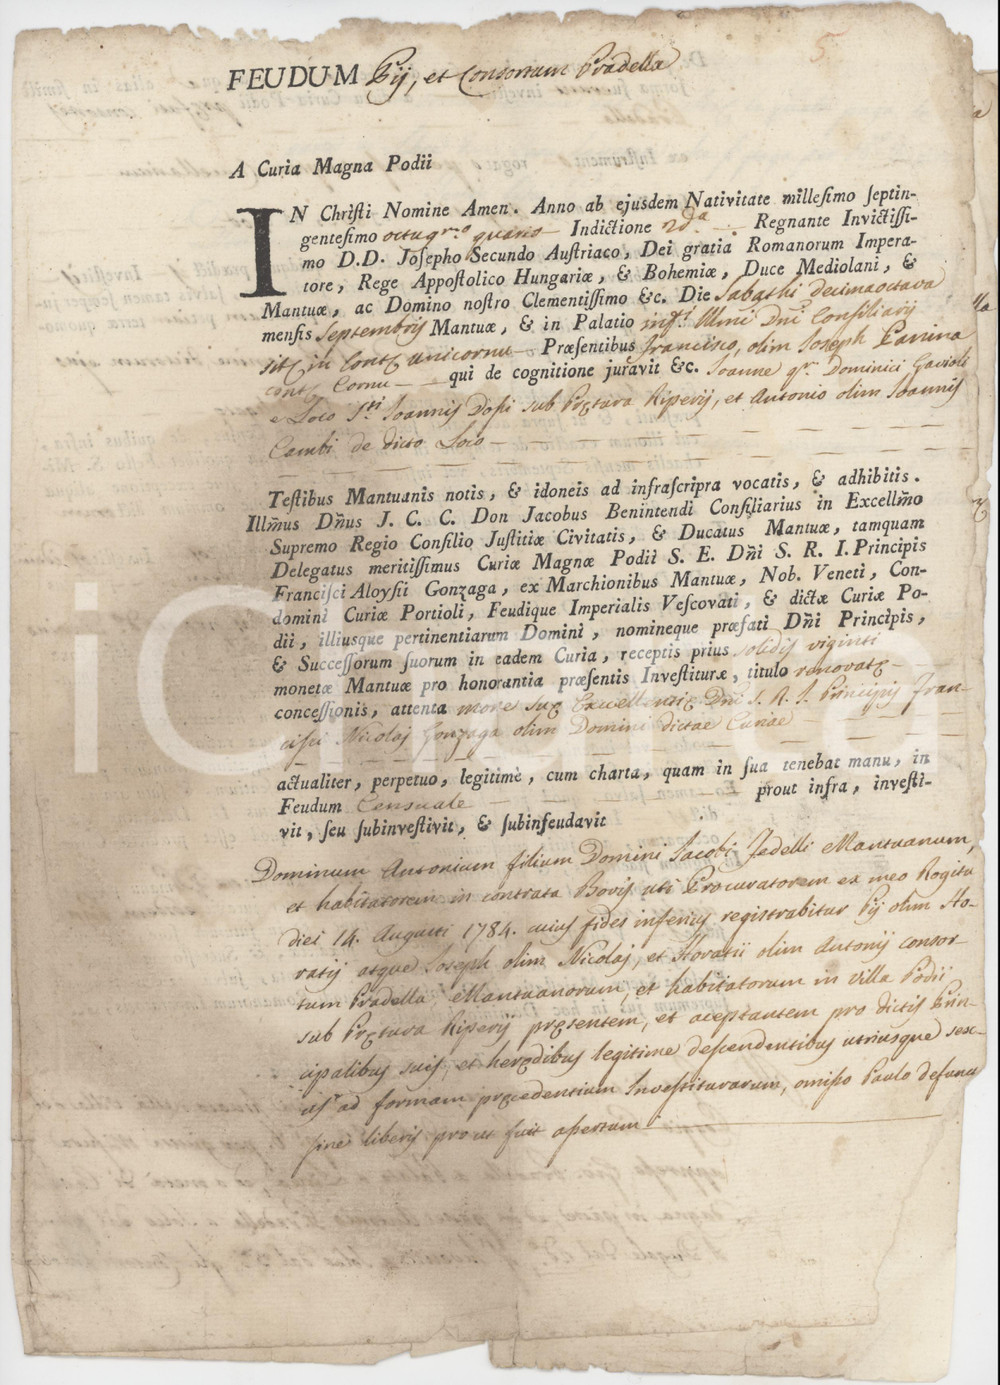 FEUDUM Pij, et Consortum Pradella
5
A Curia Magna Podii
IN Christi Nomine Amen. Anno ab ejusdem Nativitate millesimo septin-
gentesimo octuagr.º quarto Indictione 2dª Regnante Invictissi-
mo D.D. Josepho Secundo Austriaco, Dei gratia Romanorum Impera-
tore, Rege Appostolico Hungariæ, & Bohemiæ, Duce Mediolani, &
Mantuæ, ac Domino nostro Clementissimo &c. Die Sabathi decimaoctava
mensis Septembris Mantuæ, & in Palatio Illmi Dni Consiliarij
in Unicornu Præsentibus Francisco, olim Joseph
Cornu qui de cognitione juravit &c. Joanne qr. Dominici
e Loco Sti Joannis Dossi sub Prætura Riperij, et Antonio olim Joannis
Cambi de dicto Loco
Testibus Mantuanis notis, & idoneis ad infrascripra vocatis, & adhibitis.
Illm̃us Dñus J. C. C. Don Jacobus Benintendi Consiliarius in Excellm̃o
Supremo Regio Consilio Justitiæ Civitatis, & Ducatus Mantuæ, tamquam
Delegatus meritissimus Curiæ Magnæ Podii S. E. Dñi S. R. I. Principis
Francisci Aloysii Gonzaga, ex Marchionibus Mantuæ, Nob. Veneti, Con-
domini Curiæ Portioli, Feudique Imperialis Vescovati, & dictæ Curiæ Po-
dii, illiusque pertinentiarum Domini, nomineque præfati Dñi Principis,
& Successorum suorum in eadem Curia, receptis prius solidis viginti
monetæ Mantuæ pro honorantia præsentis Investituræ, titulo renovatæ
concessionis, attenta morte suæ Excellentiæ Dni S. R. I. Principis Fran-
cisci Nicolaj Gonzaga olim Domini dictae Curiae
actualiter, perpetuo, legitimè, cum charta, quam in sua tenebat manu, in
Feudum Censuale prout infra, investi-
vit, seu subinvestivit, & subinfeudavit
Dominum Antonium filium Domini Jacobi Jedelli Mantuanum,
et habitatorem in contrata Bovis uti Procuratorem ex meo Rogitu
diei 14. Augusti 1784. cuius fides inferius registrabitur Pij olim Ho-
ratij atque Joseph olim Nicolaj, et Horatii olim Antonij consor-
tum Pradella, Mantuanorum, et habitatorum in villa Podii
sub Prætura Riperij præsentem, et aceptantem pro dictis Prin-
cipalibus suis, et herædibus legitime descendentibus utriusque sex-
us ad formam præcedentium Investiturarum, omisso Paulo defuncto
sine liberis prout fuit assertum